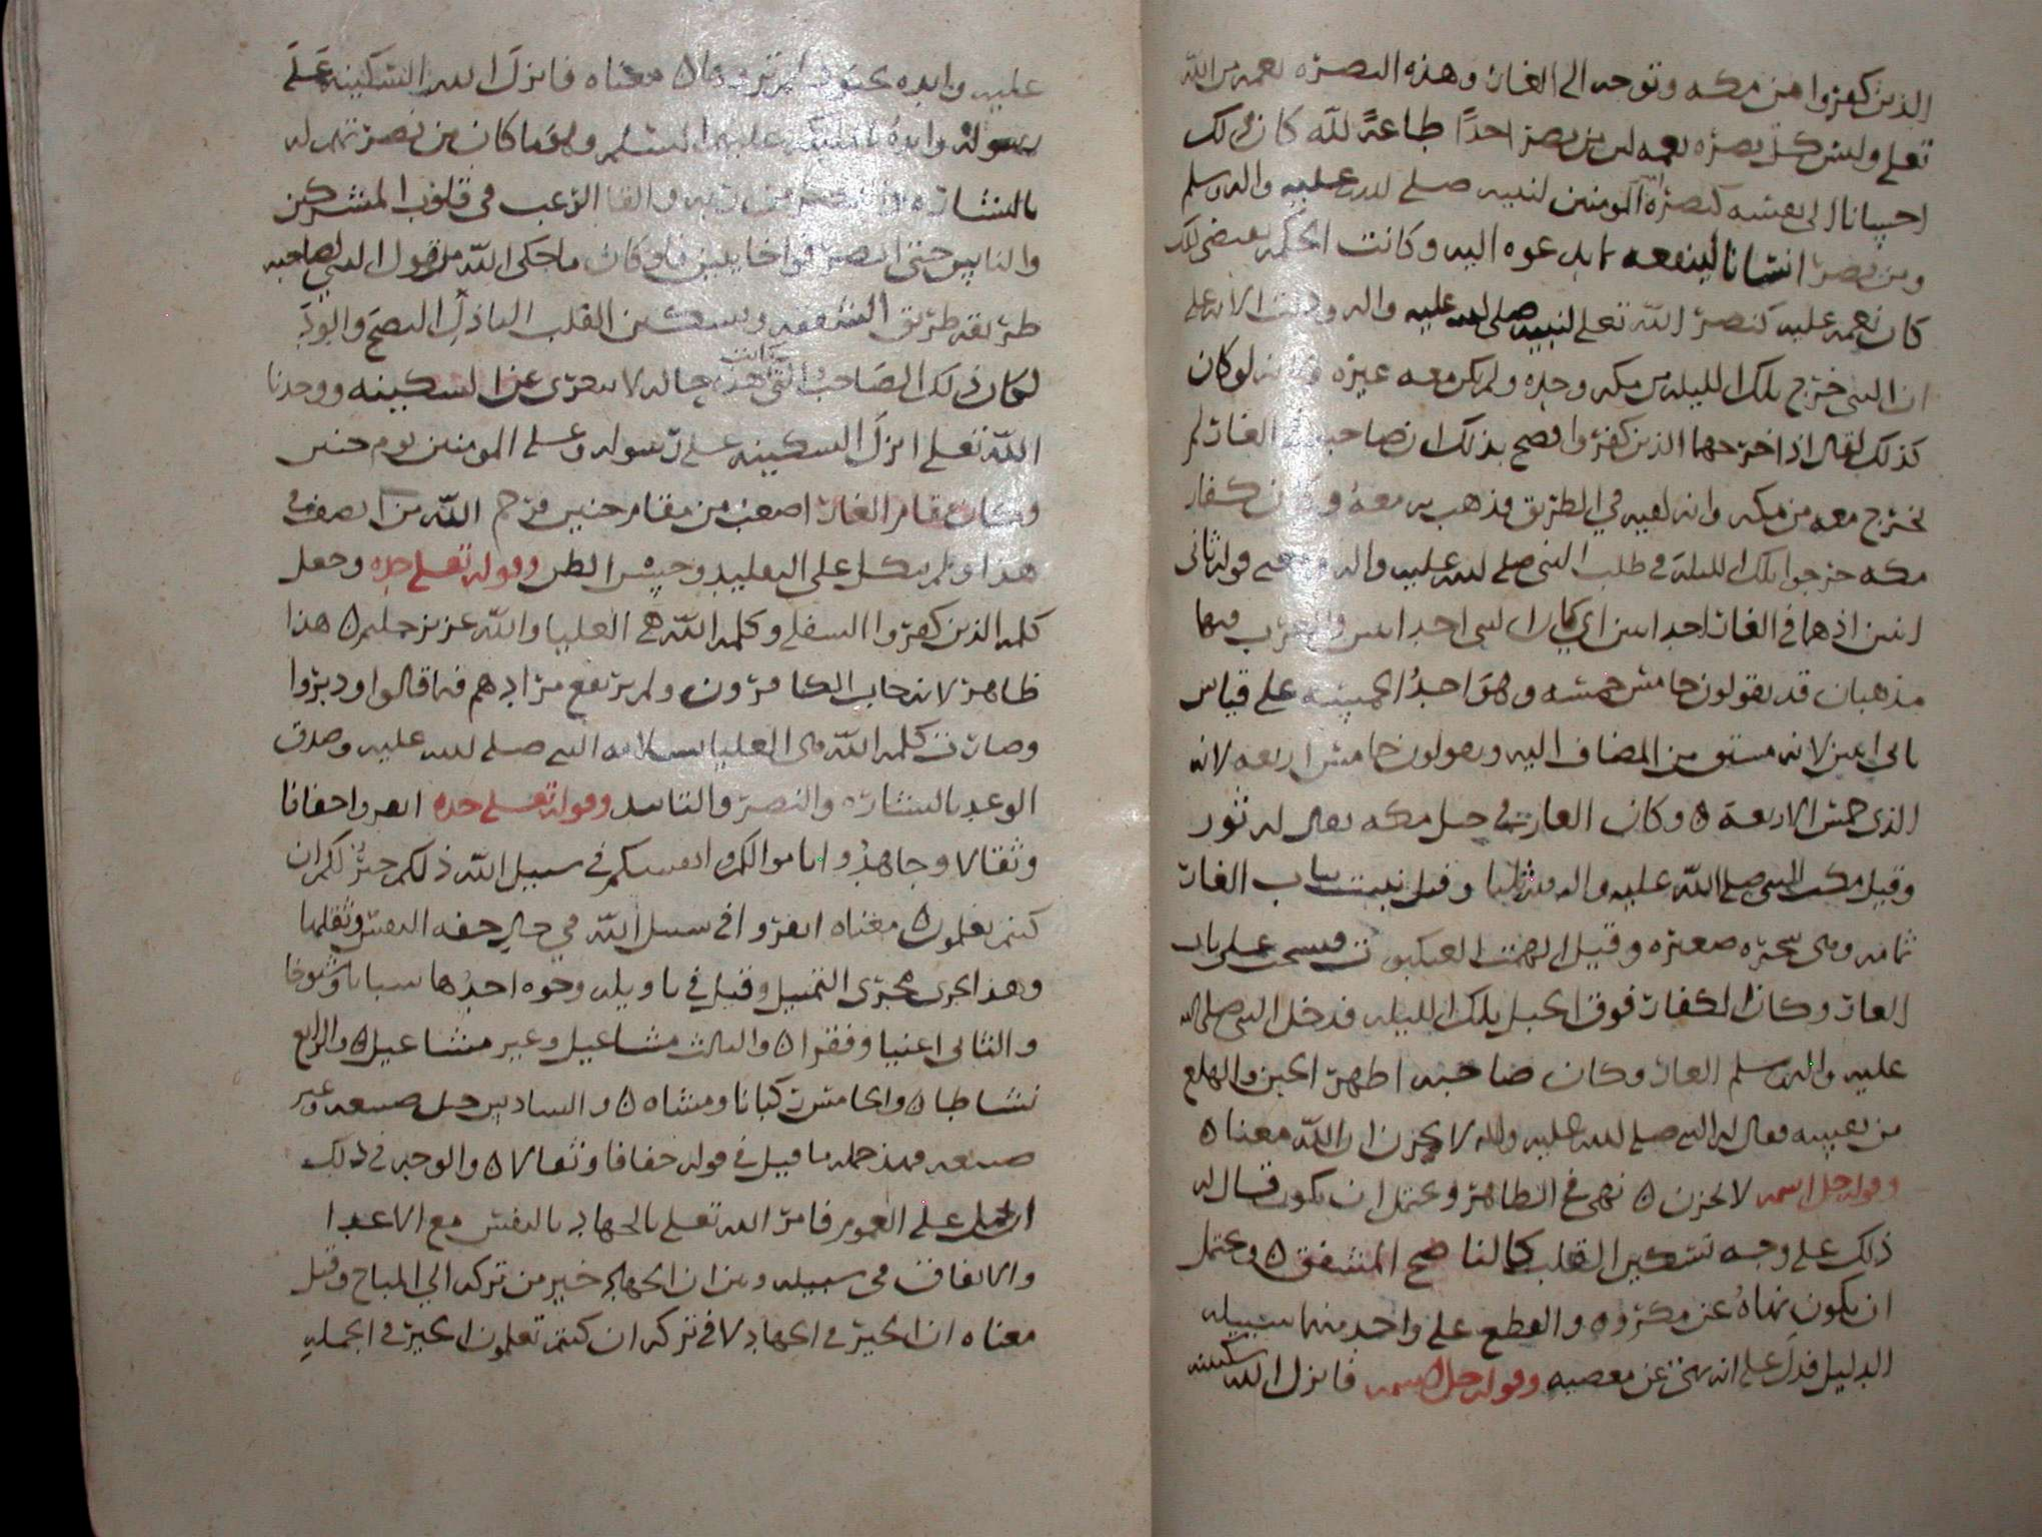 الذين كفروا من مكه وتوجه الى الغار وهذه النصره نعمه من الله
تعلى وليس كل نصره نعمه لان من نصر احدًا طاعةً لله كان ذلك
احسانا الى نفسه كنصرة المومنين لنبيه صلى الله عليه واله وسلم
ومن نصر انسانا لينفعه بما يدعوه اليه وكانت الحكمه تقتضي ذلك
كان نعمه عليه كنصر الله تعلى لنبيه صلى الله عليه واله ودلت الايه على
ان النبي خرج تلك الليله من مكه وحده ولم يكن معه غيره لانه لو كان
كذلك لقال اذ اخرجهما الذين كفروا فصح بذلك ان صاحبه في الغار لم
يخرج معه من مكه وانه لقيه في الطريق فذهب به معه وكان كفار
مكه خرجوا تلك الليله في طلب النبي صلى الله عليه واله ومعنى قوله ثاني
اثنين اذ هما في الغار احد اثنين اي كان النبي احد اثنين والعرب فيها
مذهبان قد يقولون خامس خمسه وهو احد الخمسه على قياس
ثاني اثنين لانه مشتق من المضاف اليه ويقولون خامس اربعه لانه
الذي خمس الاربعة ٥ وكان الغار في جبل مكه يقال له ثور
وقيل مكث النبي صلى الله عليه واله فيه ثلثا وقيل نبتت بباب الغار
ثمامه وهي شجره صغيره وقيل الهمت العنكبوت فنسجت على باب
الغار وكان الكفار فوق الجبل تلك الليله فدخل النبي صلى الله
عليه واله وسلم الغار وكان صاحبه اظهر الحزن والهلع
من نفسه فقال له النبي صلى الله عليه واله لا تحزن ان الله معنا ٥
وقوله جل اسمه لا تحزن ٥ نهي في الظاهر ويحتمل ان يكون قال له
ذلك على وجه تسكين القلب كالناصح المشفق ٥ ويحتمل
ان يكون نهاهُ عن مكروه والقطع على واحد منهما سبيله
الدليل فدل على انه نهى عن معصيه وقوله جل اسمه فانزل الله سكينته
عليه وايده بجنود لم تروها ٥ معناه فانزل الله السكينه على
رسوله وايدهُ بالمليكه عليهم السلم وهو ما كان من نصرتهم له
بالبشاره والقا الرعب في قلوب المشركين
والناس حتى انصرفوا خايبين فلو كان ما حكى الله من قول النبي لصاحبه
طريقه طريق الشفقه وتسكين القلب الباذل النصح والود
لكان ذلك الصاحب التي هذه كانت حاله لا يتعرى عن السكينه ووجدنا
الله تعلى انزل السكينه على رسوله وعلى المومنين يوم حنين
وكان مقام الغار اصعب من مقام حنين فرحم الله من انصف في
هذا ولم يتكل على التقليد وحسن الظن وقوله تعلى جده وجعل
كلمه الذين كفروا السفلى وكلمه الله هي العليا والله عزيز حكيم ٥ هذا
ظاهر لانه خاب الكافرون ولم يرتفع مرادهم فيما قالوا ودبروا
وصارت كلمه الله هي العليا بسلامه النبي صلى الله عليه وصدق
الوعد بالبشاره والنصر والتاييد وقوله تعلى جده انفروا خفافا
وثقالا وجاهدُوا باموالكم وانفسكم في سبيل الله ذلكم خيرٌ لكم ان
كنتم تعلمون ٥ معناه انفروا في سبيل الله في حال خفه النفس وثقلها
وهذا يجرى مجرى التمثيل وقيل في تاويله وجوه احدُها شبابا وشيوخا
والثاني اغنيا وفقرا ٥ والثالث مشاغيل وغير مشاغيل ٥ والرابع
نشاطا ٥ والخامس ركبانا ومشاه ٥ والسادس ضيعه وغير
ضيعه فهذ جمله ما قيل في قوله خفافا وثقالا ٥ والوجه في ذلك
ان يحمل على العموم فامر الله تعلى بالجهاد بالنفس مع الاعدا
والانفاق في سبيله وبين ان الجهاد خير من تركه الى المباح وقيل
معناه ان الخير في الجهاد لا في تركه ان كنتم تعلمون الخير في الجمله